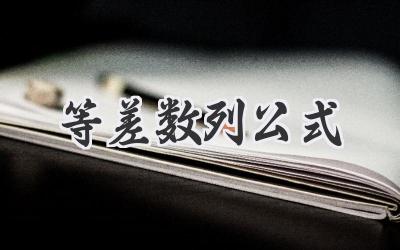 等差数列公式